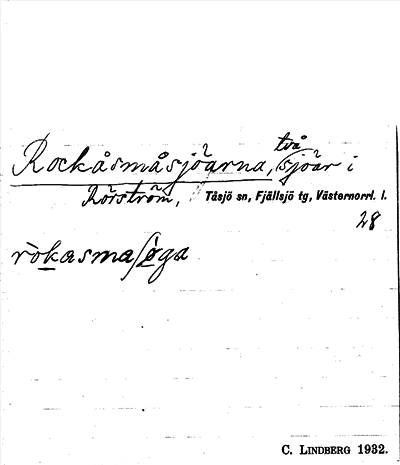 Rockåsmåsjöarna, två sjöar i
Rörström, Tåsjö sn, Fjällsjö tg, Västernorrl. l.
28
ròkasmaʃøga
C. LINDBERG 1932.